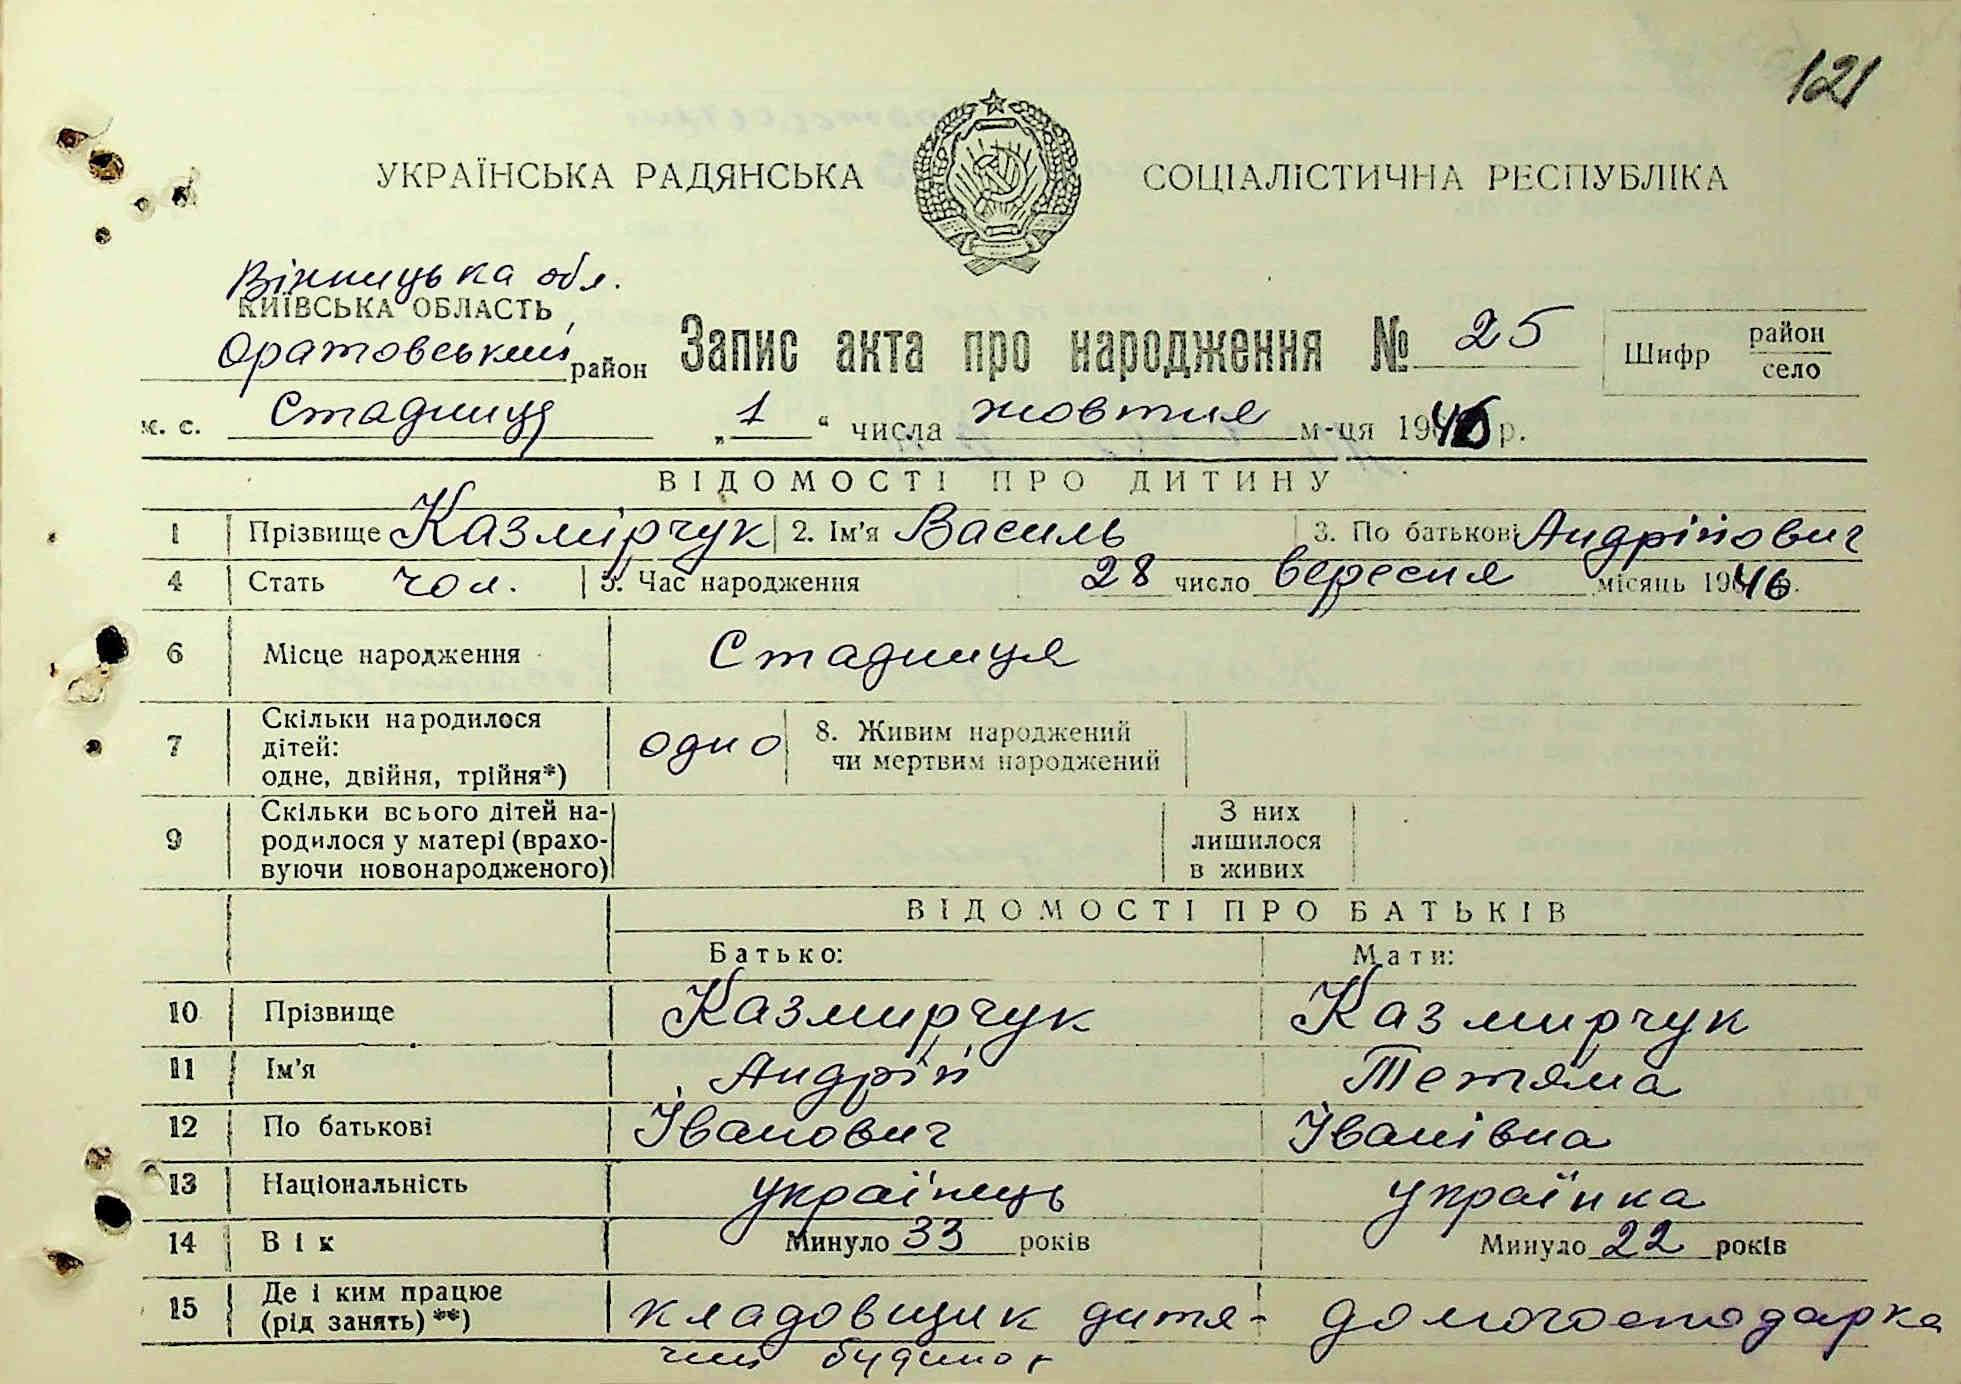 121
УКРАЇНСЬКА РАДЯНСЬКА СОЦІАЛІСТИЧНА РЕСПУБЛІКА
Вінницька обл.
КИЇВСЬКА ОБЛАСТЬ,
Оратовський район Запис акта про народження № 25 Шифр район село
м. с. Стадниця „1“ числа жовтня м-ця 1946 р.
ВІДОМОСТІ ПРО ДИТИНУ
1 Прізвище Казмірчук 2. Ім'я Василь 3. По батькові Андрійович
4 Стать чол. 5. Час народження 28 число вересня місяць 1946.
6 Місце народження Стадниця
7 Скільки народилося дітей: одне, двійня, трійня*) одно 8. Живим народжений чи мертвим народжений
9 Скільки всього дітей на-
родилося у матері (врахо-
вуючи новонародженого) З них лишилося в живих
ВІДОМОСТІ ПРО БАТЬКІВ
Батько: Мати:
10 Прізвище Казмирчук Казмирчук
11 Ім'я Андрій Тетяна
12 По батькові Іванович Іванівна
13 Національність українець українка
14 Вік Минуло 33 років Минуло 22 років
15 Де і ким працює (рід занять) **) кладовщик дитя- домогосподарка
чий будинок